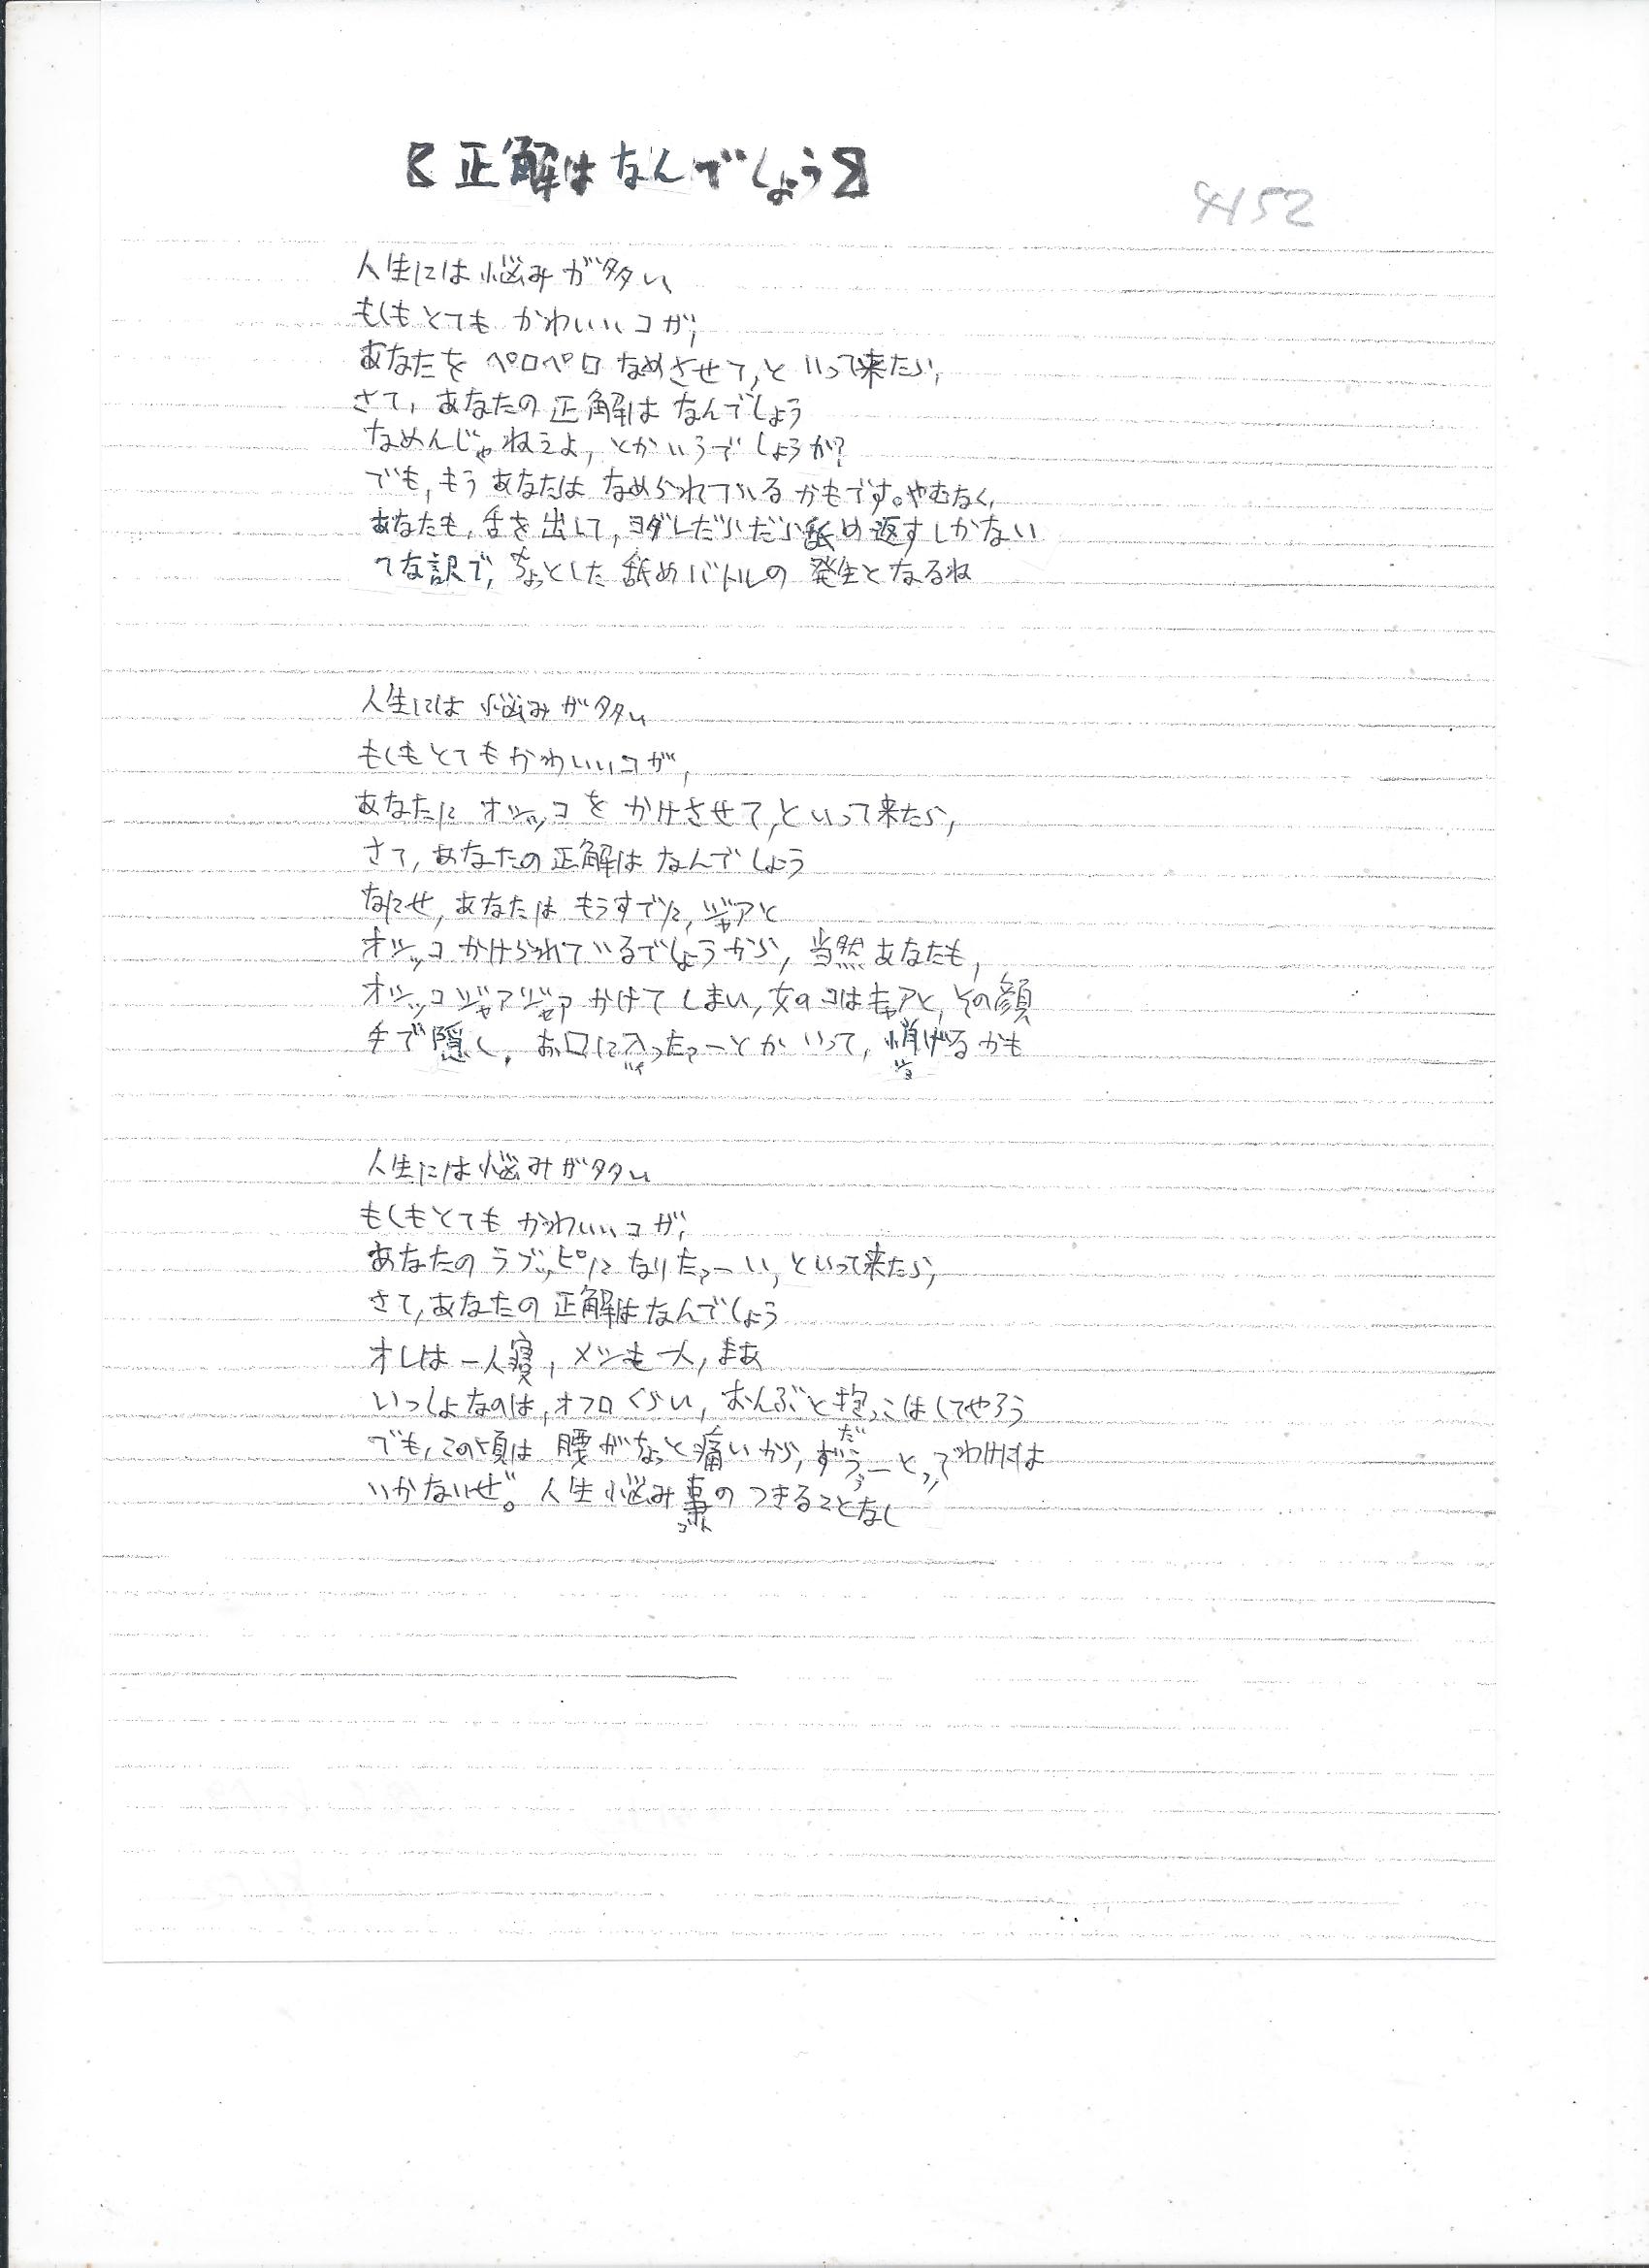 【正解はなんでしょう】
4152
人生には悩みが多い
もしもとてもかわいいコが、
あなたをペロペロなめさせて、といって来たら、
さて、あなたの正解はなんでしょう
なめんじゃねえよ、とかいうでしょうか?
でも、もうあなたはなめられているかもです。やむなく、
あなたも、舌を出して、ヨダレだらだら舐め返すしかない
てな訳で、ちょっとした舐めバトルの発生となるね
人生には悩みが多い
もしもとてもかわいいコが、
あなたにオシッコをかけさせて、といって来たら、
さて、あなたの正解はなんでしょう
なにせ、あなたはもうすでに、ジャアと
オシッコかけられているでしょうから、当然あなたも、
オシッコジャアジャアかけてしまい、女のコはキャアと、その顔
手で隠し、お口に入ったァーとかいって、悄げるかも
人生には悩みが多い
もしもとてもかわいいコが、
あなたのラブッピになりたァーい、といって来たら、
さて、あなたの正解はなんでしょう
オレは一人寝、メシも一人、まあ
いっしょなのは、オフロくらい、おんぶと抱っこはしてやろう
でも、この頃は腰がちょっと痛いから、ずうーとってわけには
いかないぜ。人生悩み事のつきることなし